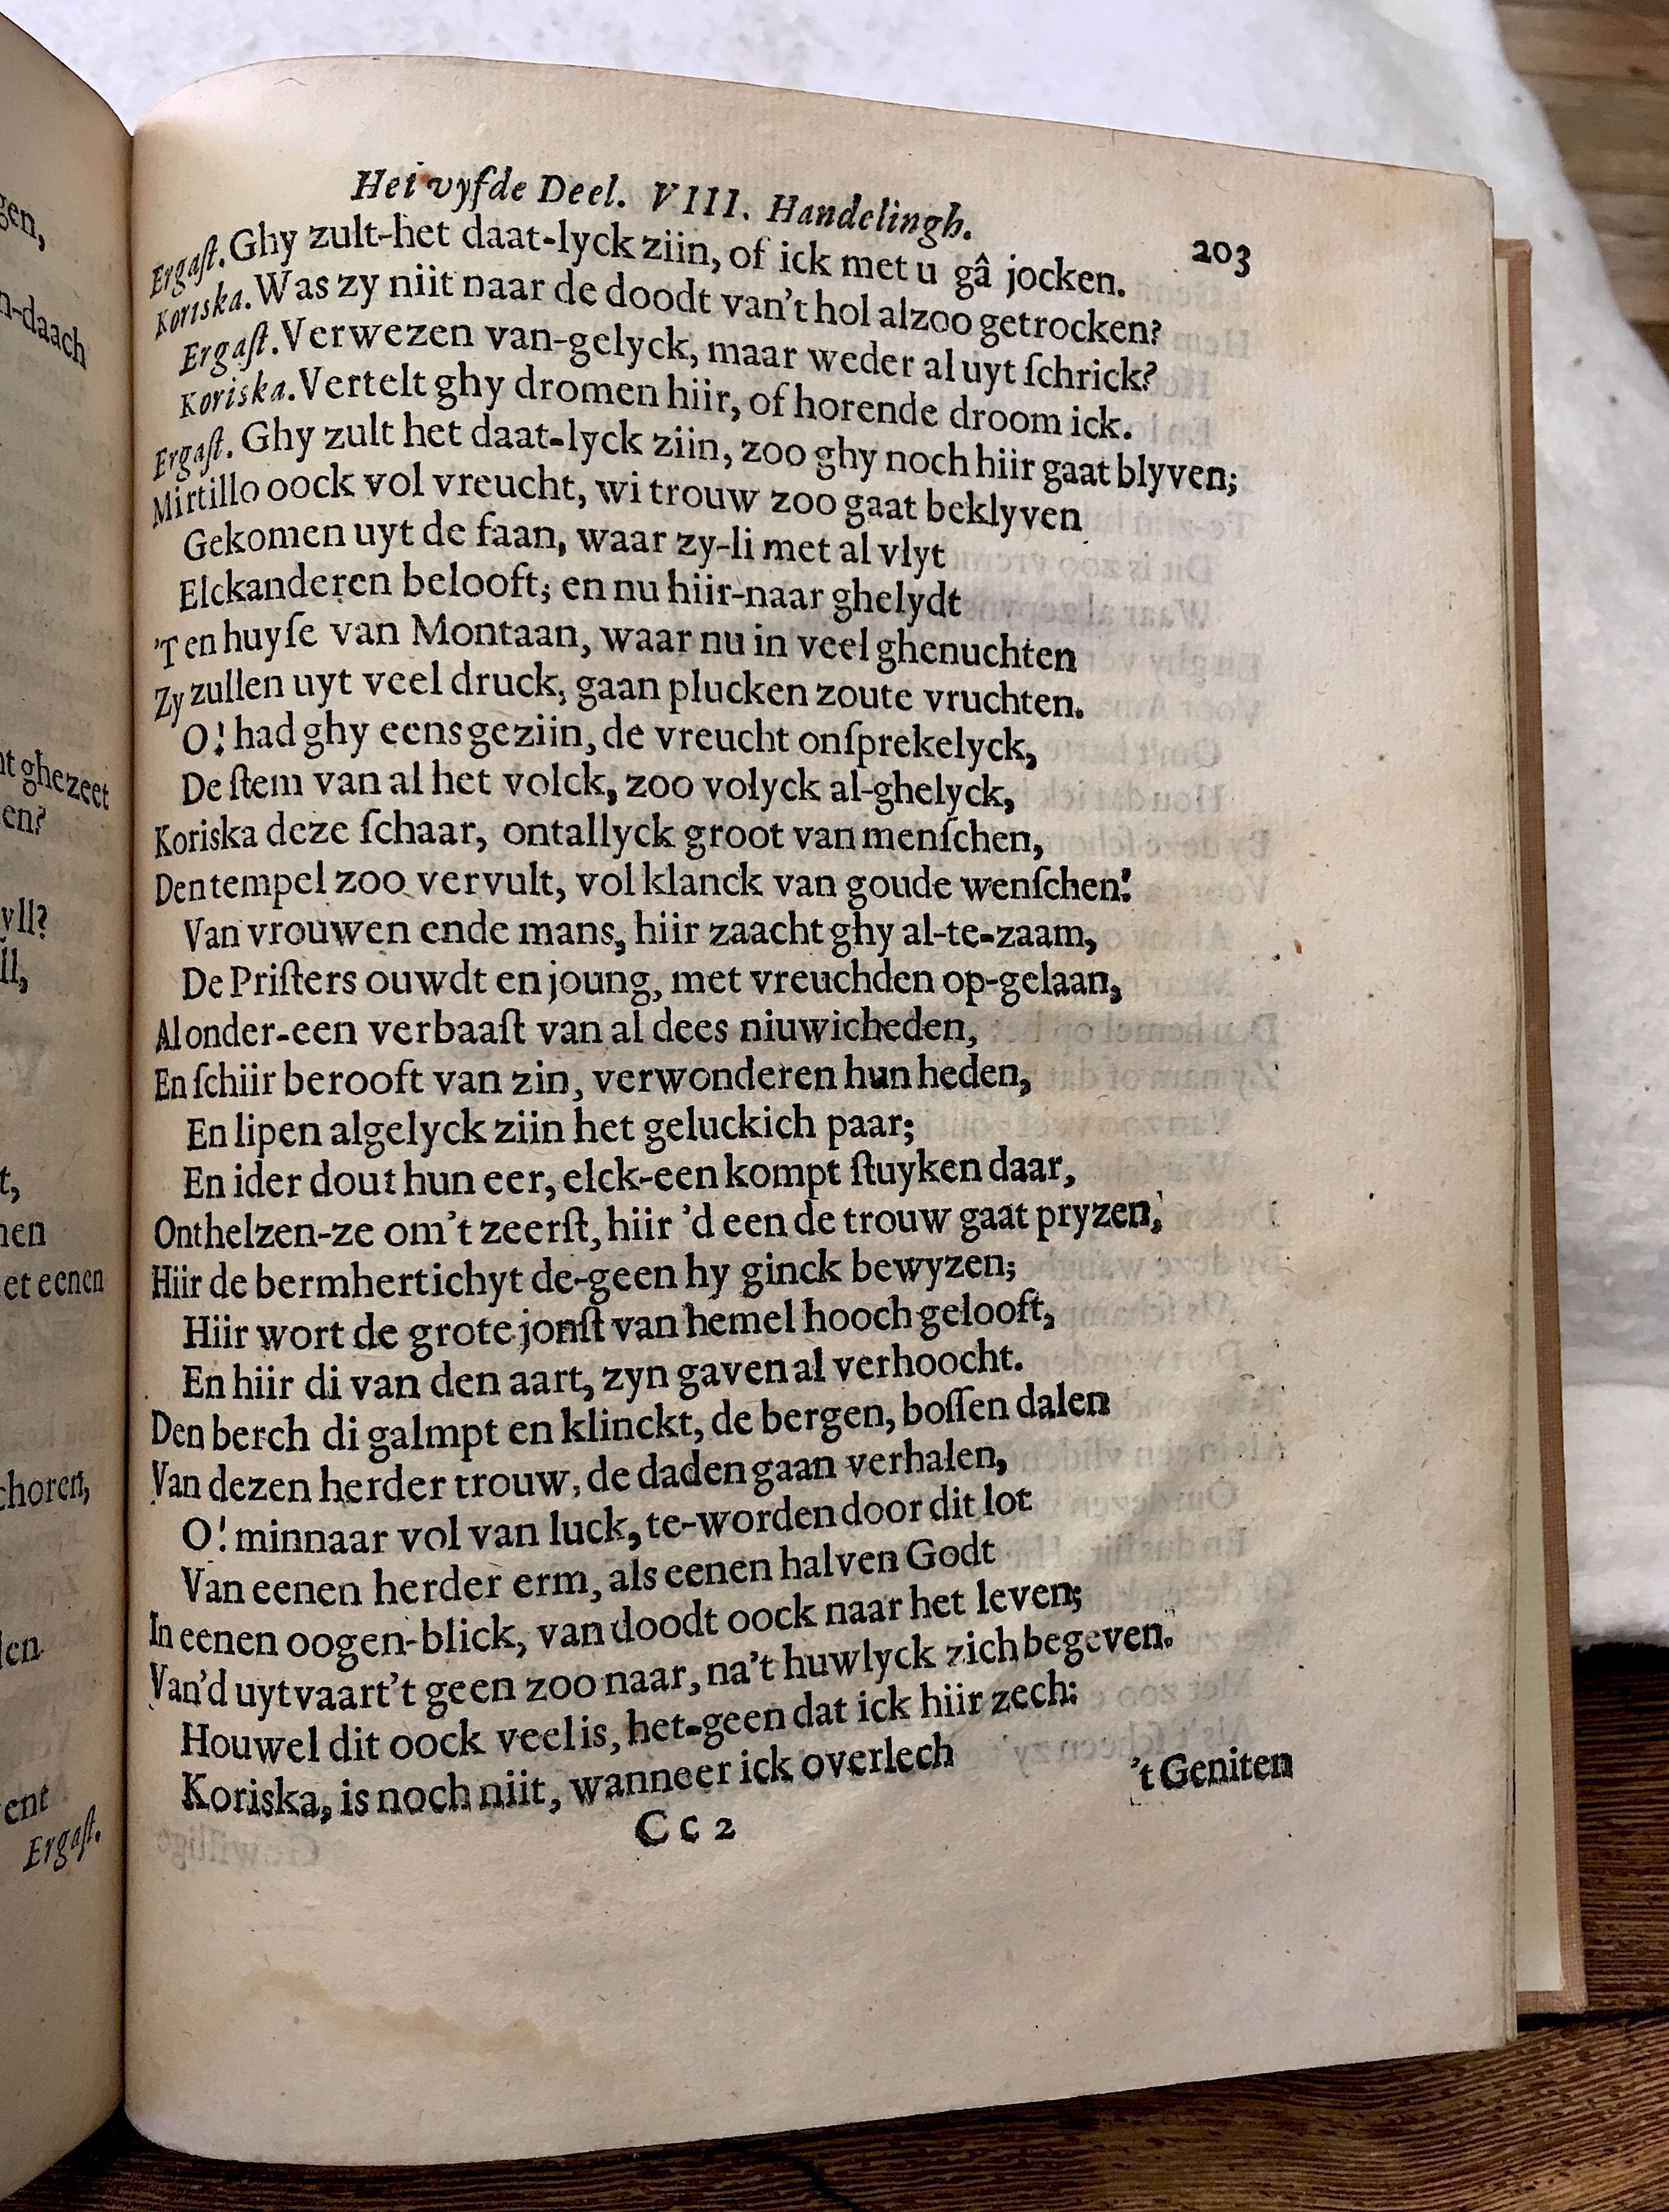 gen,
n-daach
nt ghezeet
en?
yll?
ll,
t,
nen
et eenen
choren,
len
ent
Ergaſt.
Het vyfde Deel. VIII. Handelingh. 203
Ergaſt. Ghy zult-het daat-lyck ziin, of ick met u gâ jocken.
Koriska. Was zy niit naar de doodt van't hol alzoo getrocken?
Ergaſt. Verwezen van-gelyck, maar weder al uyt ſchrick?
Koriska. Vertelt ghy dromen hiir, of horende droom ick.
Ergaſt. Ghy zult het daat-lyck ziin, zoo ghy noch hiir gaat blyven;
Mirtillo oock vol vreucht, wi trouw zoo gaat beklyven
Gekomen uyt de faan, waar zy-li met al vlyt
Elckanderen belooft; en nu hiir-naar ghelydt
'T en huyſe van Montaan, waar nu in veel ghenuchten
Zy zullen uyt veel druck, gaan plucken zoute vruchten.
O! had ghy eens geziin, de vreucht onſprekelyck,
De ſtem van al het volck, zoo volyck al-ghelyck,
Koriska deze ſchaar, ontallyck groot van menſchen,
Den tempel zoo vervult, vol klanck van goude wenſchen!
Van vrouwen ende mans, hiir zaacht ghy al-te-zaam,
De Priſters ouwdt en joung, met vreuchden op-gelaan,
Al onder-een verbaaſt van al dees niuwicheden,
En ſchiir berooft van zin, verwonderen hun heden,
En lipen algelyck ziin het geluckich paar;
En ider dout hun eer, elck-een kompt ſtuyken daar,
Onthelzen-ze om't zeerſt, hiir 'd een de trouw gaat pryzen,
Hiir de bermhertichyt de-geen hy ginck bewyzen;
Hiir wort de grote jonſt van hemel hooch gelooft,
En hiir di van den aart, zyn gaven al verhoocht.
Den berch di galmpt en klinckt, de bergen, boſſen dalen
Van dezen herder trouw, de daden gaan verhalen,
O! minnaar vol van luck, te-worden door dit lot
Van eenen herder erm, als eenen halven Godt
In eenen oogen-blick, van doodt oock naar het leven;
Van'd uytvaart't geen zoo naar, na't huwlyck zich begeven.
Houwel dit oock veel is, het-geen dat ick hiir zech:
Koriska, is noch niit, wanneer ick overlech
't Geniten
Cc 2